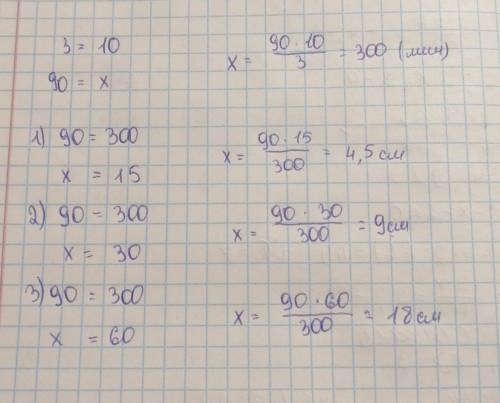 3 = 10
90 = x
x = 90 · 10 / 3 = 300 (мин)
1) 90 = 300
x = 15
x = 90 · 15 / 300 = 4,5 см
2) 90 = 300
x = 30
x = 90 · 30 / 300 = 9 см
3) 90 = 300
x = 60
x = 90 · 60 / 300 = 18 см